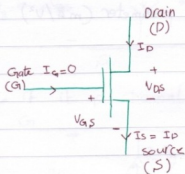 Drain
(D)
I_D
Gate I_G=0
(G)
+
+
V_DS
-
V_GS
-
I_S = I_D
source
(S)